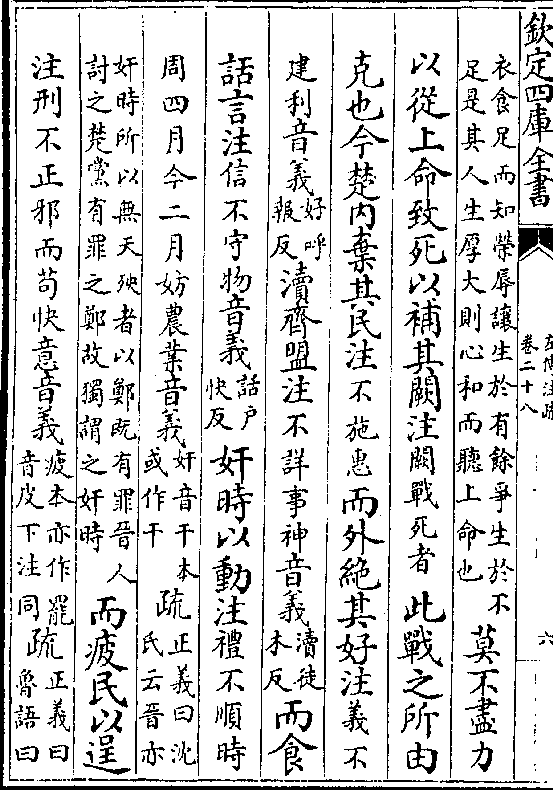 欽定四庫全書
左傳注疏
卷二十八
六
衣食足而知榮辱讓生於有餘爭生於不
足是其人生厚大則心和而聽上命也
莫不盡力
以從上命致死以補其闕注闕戰死者此戰之所由
克也今楚内棄其民注不施惠而外絶其好注義不
建利音義好呼
報反
瀆齊盟注不詳事神音義瀆徒
木反
而食
話言注信不守物音義話户
快反
奸時以動注禮不順時
周四月今二月妨農業音義奸音干本
或作干
疏正義曰沈
氏云晉亦
奸時所以無天殃者以鄭既有罪晉人
討之楚黨有罪之鄭故獨謂之奸時
而疲民以逞
注刑不正邪而苟快意音義疲本亦作罷
音皮下注同
疏正義曰
魯語曰